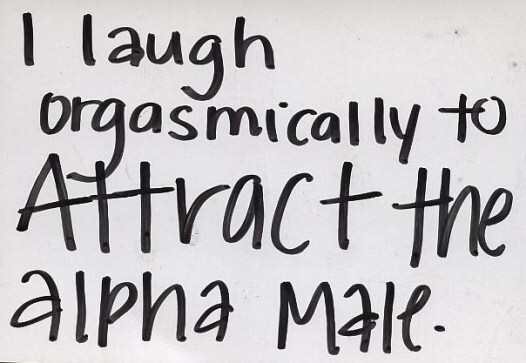 I laugh
orgasmically to
Attract the
alpha Male.